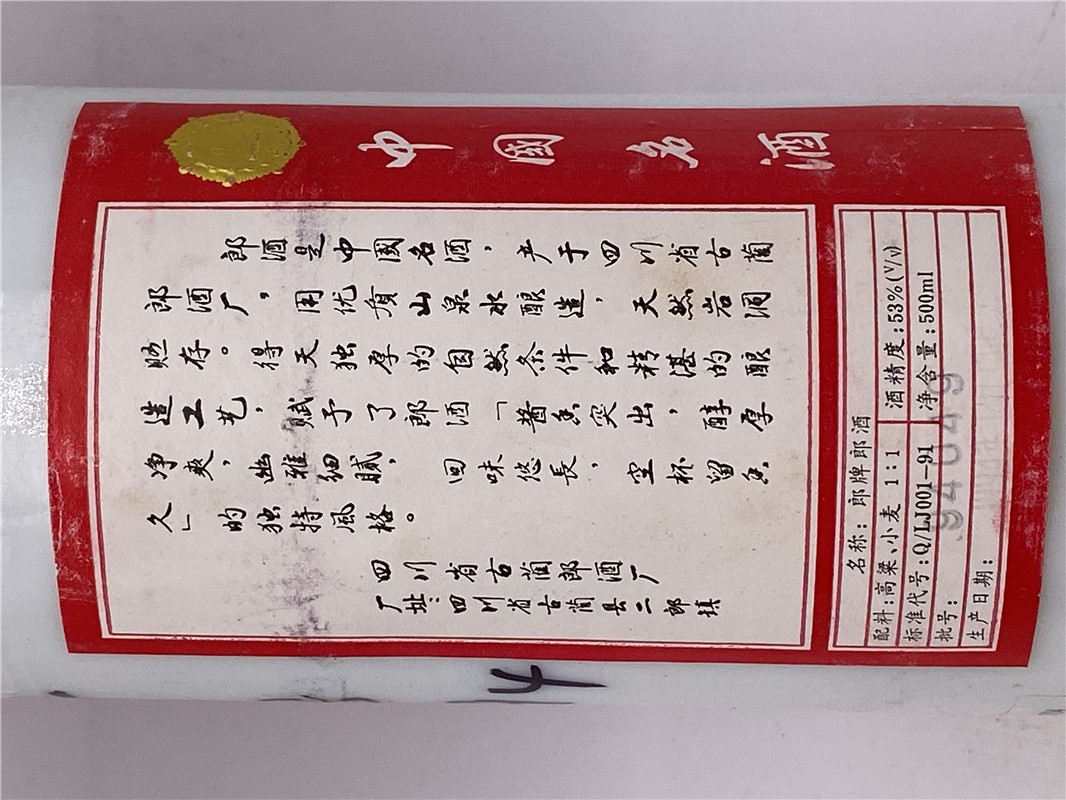 中國名酒
郎酒是中國名酒，产于四川省古藺
郎酒厂，用优质山泉水酿造，天然岩洞
贮存。得天独厚的自然条件和精湛的酿
造工艺，赋予了郎酒「酱香突出，醇厚
净爽，幽雅细腻，回味悠長，空杯留香
久」的独特風格。
四川省古藺郎酒厂
厂址：四川省古藺县二郎镇
名称：郎牌郎酒
配料：高粱、小麦 1:1 酒精度：53%(V/V)
标准代号：Q/LJ001-91 净含量：500ml
批号：
生产日期：
4